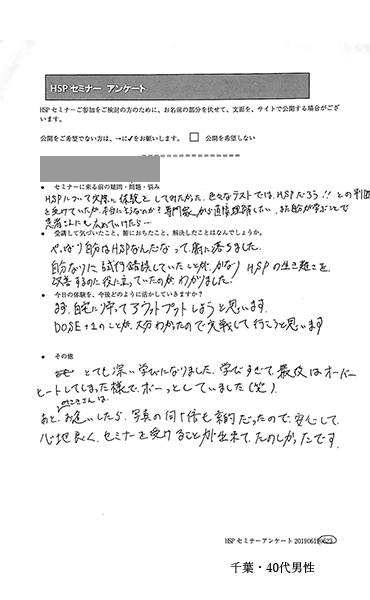 HSP セミナー アンケート
HSP セミナーご参加をご検討の方のために、お名前の部分を伏せて、文面を、サイトで公開する場合がござ
います。
公開をご希望でない方は、→に✓をお願いします。 □ 公開を希望しない
● セミナーに来る前の疑問・問題・悩み
HSPについて実際に体験をしてみたかった。色々なテストでは、HSPだろう!! との判断
を受けていたが、本当にそうなのか? 専門家から直接理解したい、また自分が学ぶことで
患者さんにも広めていけたら…
● 受講して気づいたこと、腑におちたこと、解決したことはなんでしょう。
やっぱり自分はHSPなんだなって腑に落ちました。
自分なりに試行錯誤していたことが、かなりHSPの生き廻こを
改善するのに役に立っていたのが、わかりました!
● 今日の体験を、今後どのように活かしていきますか?
まず、自宅に帰ってアウトプットしようと思います。
DOSE+1のことが、大分わかたので実戦して行こうと思います
● その他
とても深い学びになりました。学びすぎて最後はオーバー
ヒートしてしまった様で、ボーっとしていました(笑)。
あと、みさきさんは、お逢いしたら、写真の何十倍も素的だったので、安心して、
心地良く、セミナーを受けることが出来て、たのしかったです。
HSP セミナーアンケート 20190619/0623
千葉・40代男性